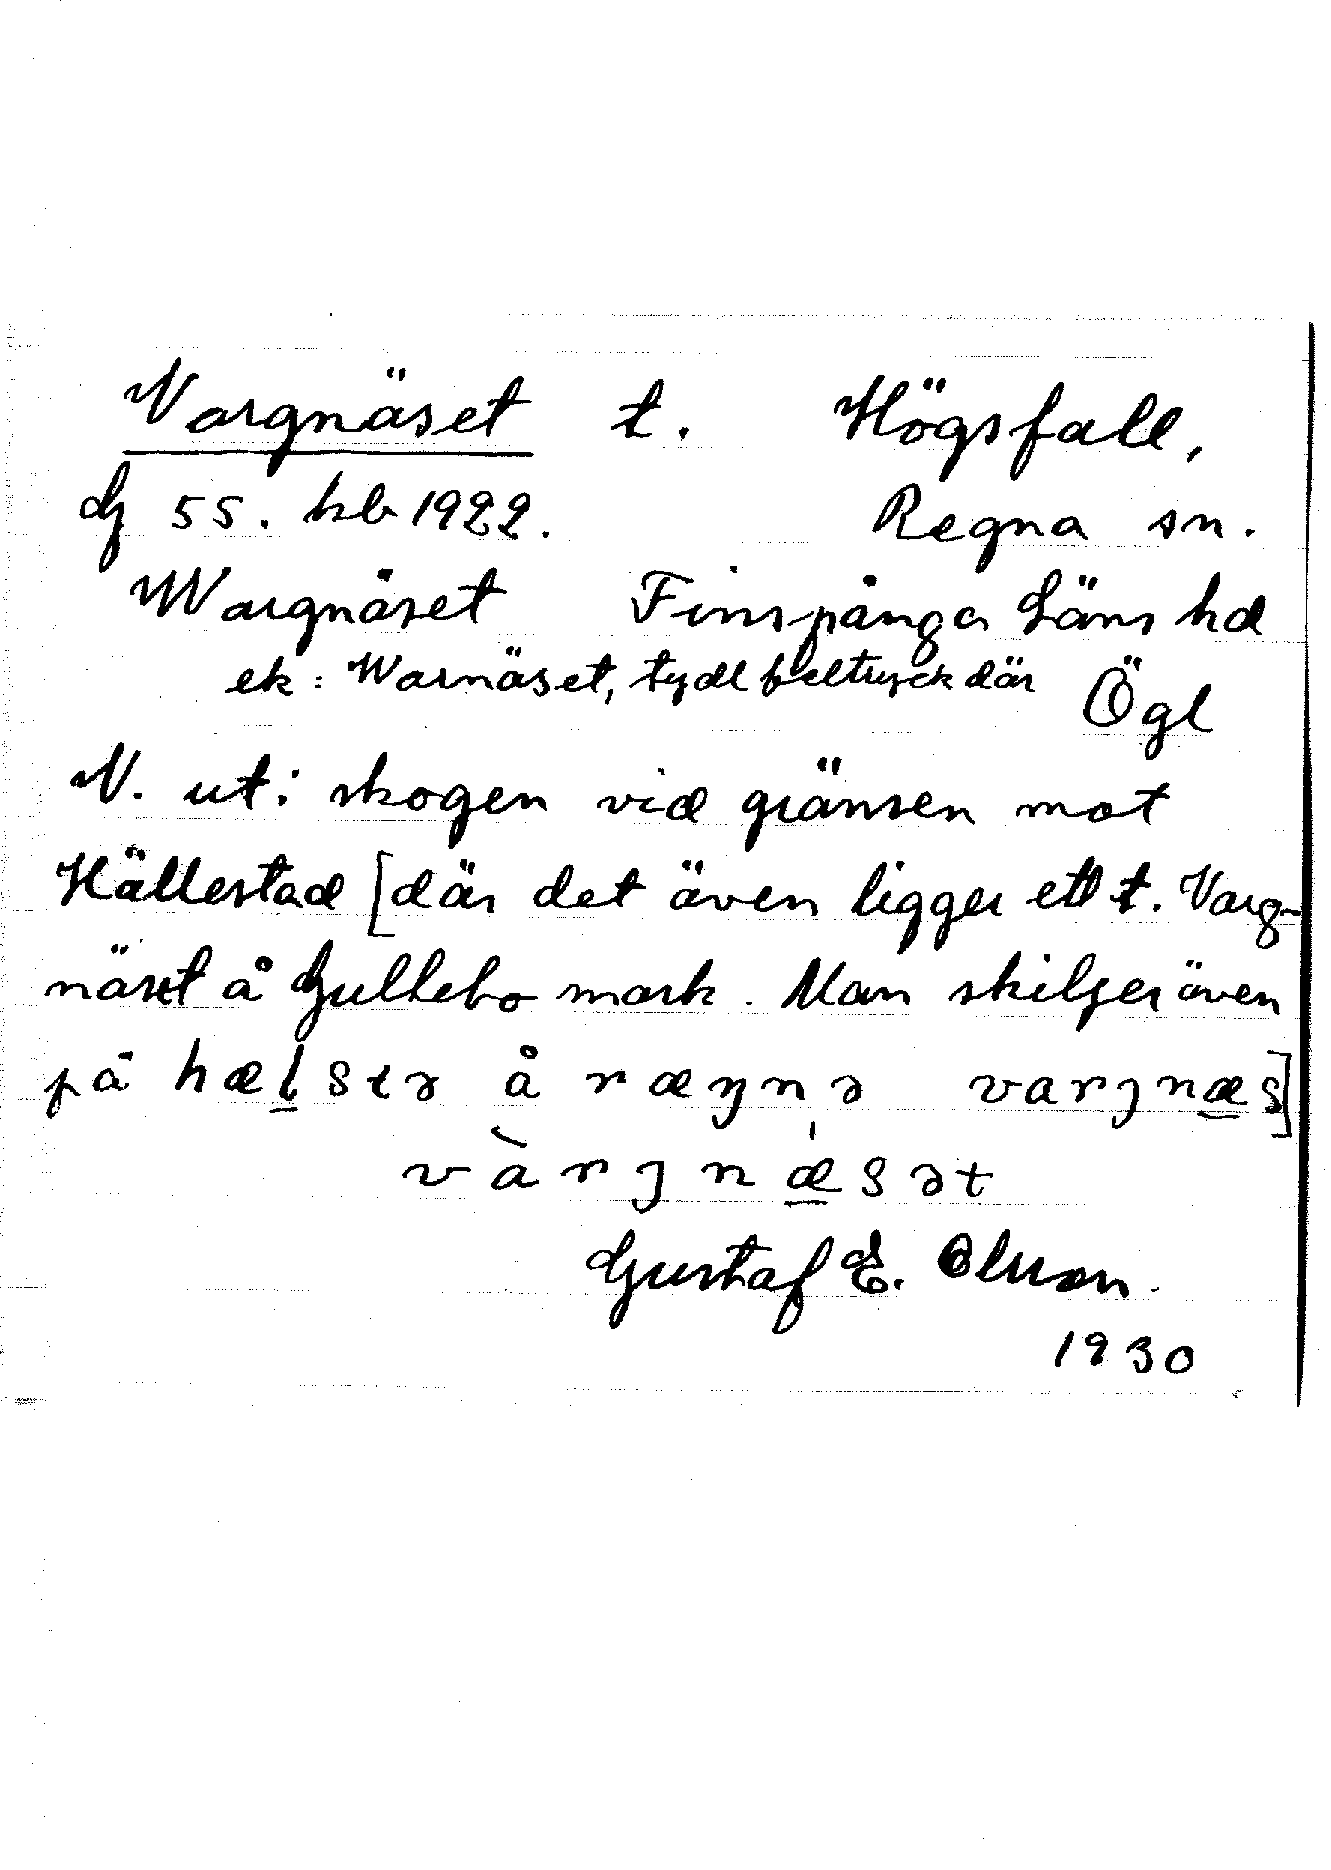 Vargnäset t. Högsfall,
dJ 55. kb 1922. Regna sn.
Wargnäset Finspånga Läns hd
ek: Warnäset, tydl feltryck där Ögl
V. ut i skogen vid gränsen mot
Hällestad [där det även ligger ett t. Varg-
näset å Gullebo mark. Man skiljer även
på hælstə å ræŋnə varjnæs]
vàrjnæsət
Gustaf E. Olsson.
1930